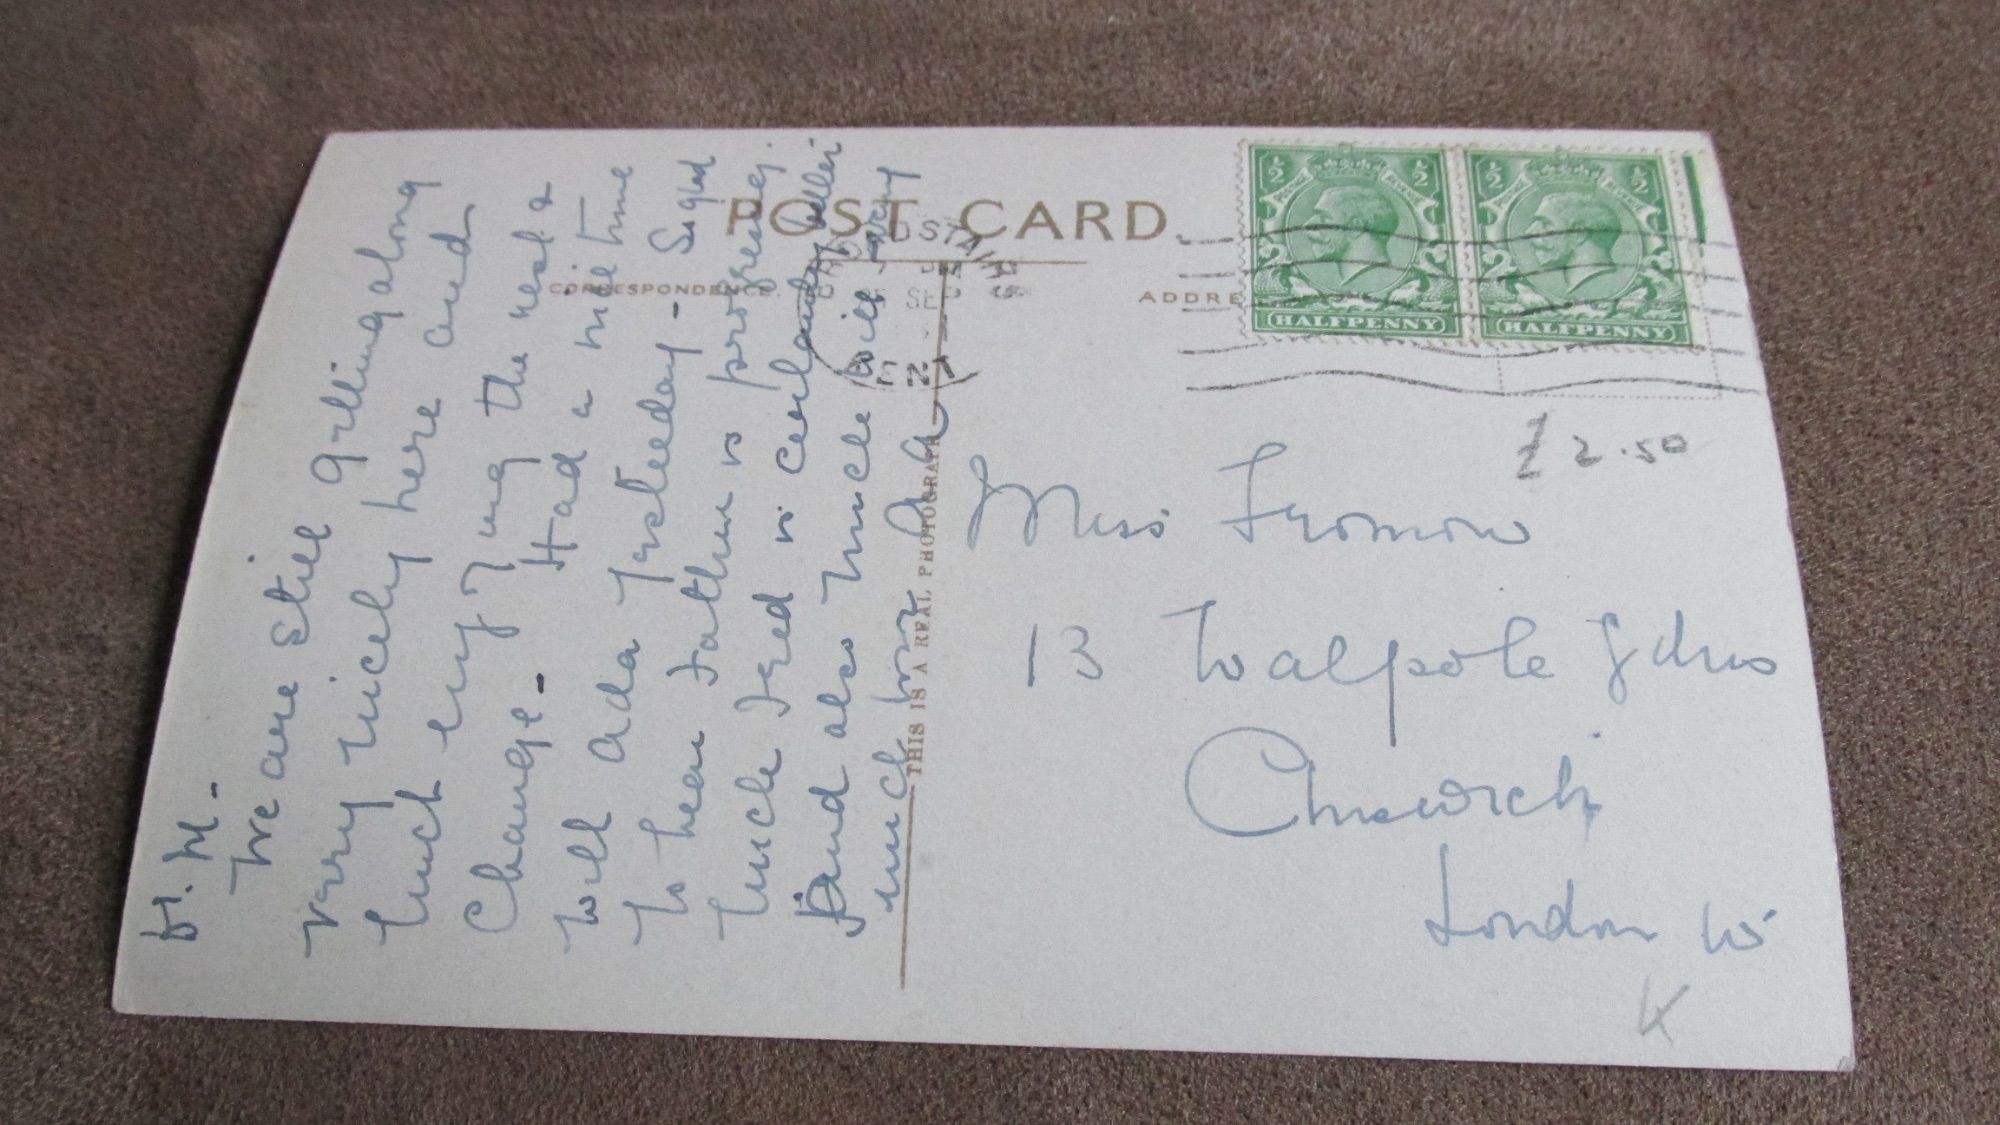 POST CARD
CORRESPONDENCE.
ADDRE
THIS IS A REAL PHOTOGRAPH
½ ½
HALFPENNY
½ ½
HALFPENNY
BROADSTAIRS
SEP
KENT
£2.50
Dr. M. -
We are still getting along
very nicely here and
much enjoying the rest &
Change - Had a nice time
with Ada yesterday - So glad
to hear Father is progressing.
Uncle Fred is certainly better
and also Uncle Will very
much
Miss Fromow
13 Walpole Gdns
Chiswick
London W